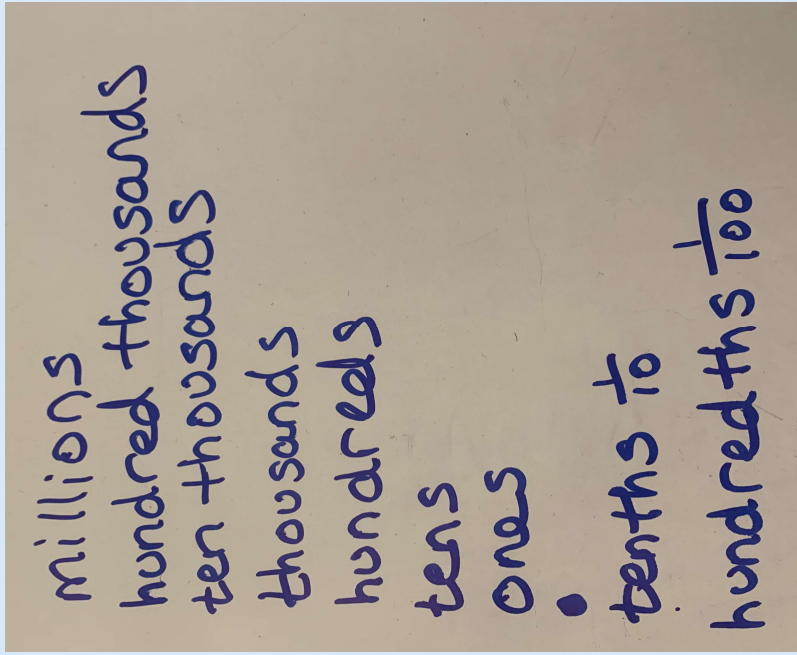 millions
hundred thousands
ten thousands
thousands
hundreds
tens
ones
.
tenths 1/10
hundredths 1/100